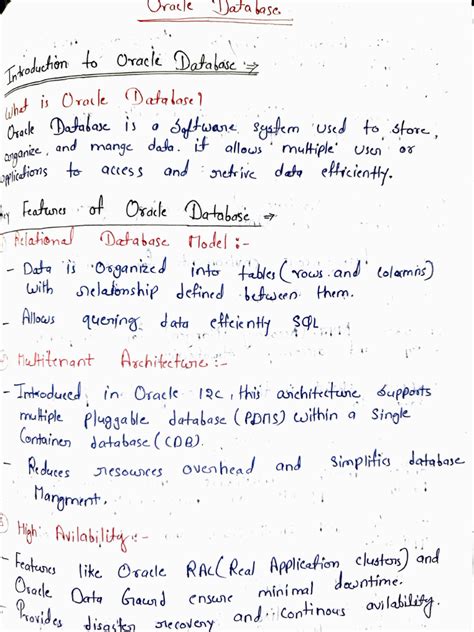 Oracle Database
Introduction to Oracle Database ⇒
What is Oracle Database?
Oracle Database is a Software system used to store,
organize, and mange data. it allows multiple user or
applications to access and retrive data efficiently.
Key Features of Oracle Database ⇒
Relational Database Model :-
- Data is Organized into tables (rows and colomns)
with relationship defined between them.
- Allows quering data effciently SQL
Multitenant Architecture :-
- Introduced in Oracle 12c, this architecture supports
multiple pluggable database (PDMS) within a Single
Container database (CDB).
- Reduces resources overhead and Simplifies database
Mangment.
High Avilability :-
- Features like Oracle RAC (Real Application clusters) and
Oracle Data Ground ensure minimal downtime.
- Provides disaster recovery and continous avilability.